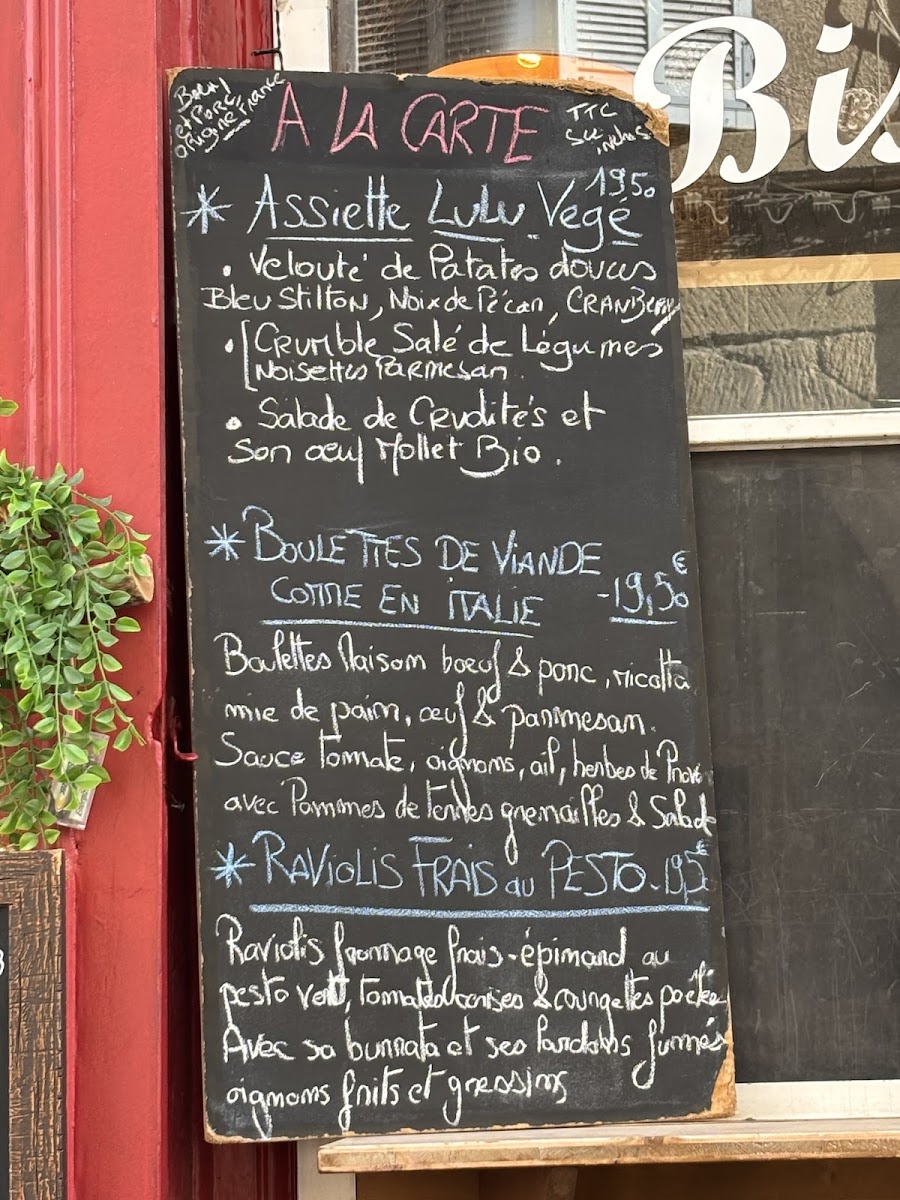 Bœuf
et Porc
origine France
A LA CARTE
TTC
inclus
Bis
19.50
* Assiette Lulu Végé
. Velouté de Patates douces
Bleu Stilton, Noix de Pécan, CRANBERRY
. Crumble Salé de Légumes
Noisettes Parmesan.
. Salade de Crudités et
Son œuf Mollet Bio.
* BOULETTES DE VIANDE
COMME EN ITALIE - 19,50€
Boulettes Maison bœuf & porc, ricotta
mie de pain, œuf & parmesan.
Sauce tomate, oignons, ail, herbes de Prov
avec Pommes de terres grenailles & Salade
* RAVIOLIS FRAIS au PESTO - 19,5€
Raviolis fromage frais - épinard au
pesto vert, tomates cerises & courgettes poêlées
Avec sa burrata et ses lardons fumés
oignons frits et gressins